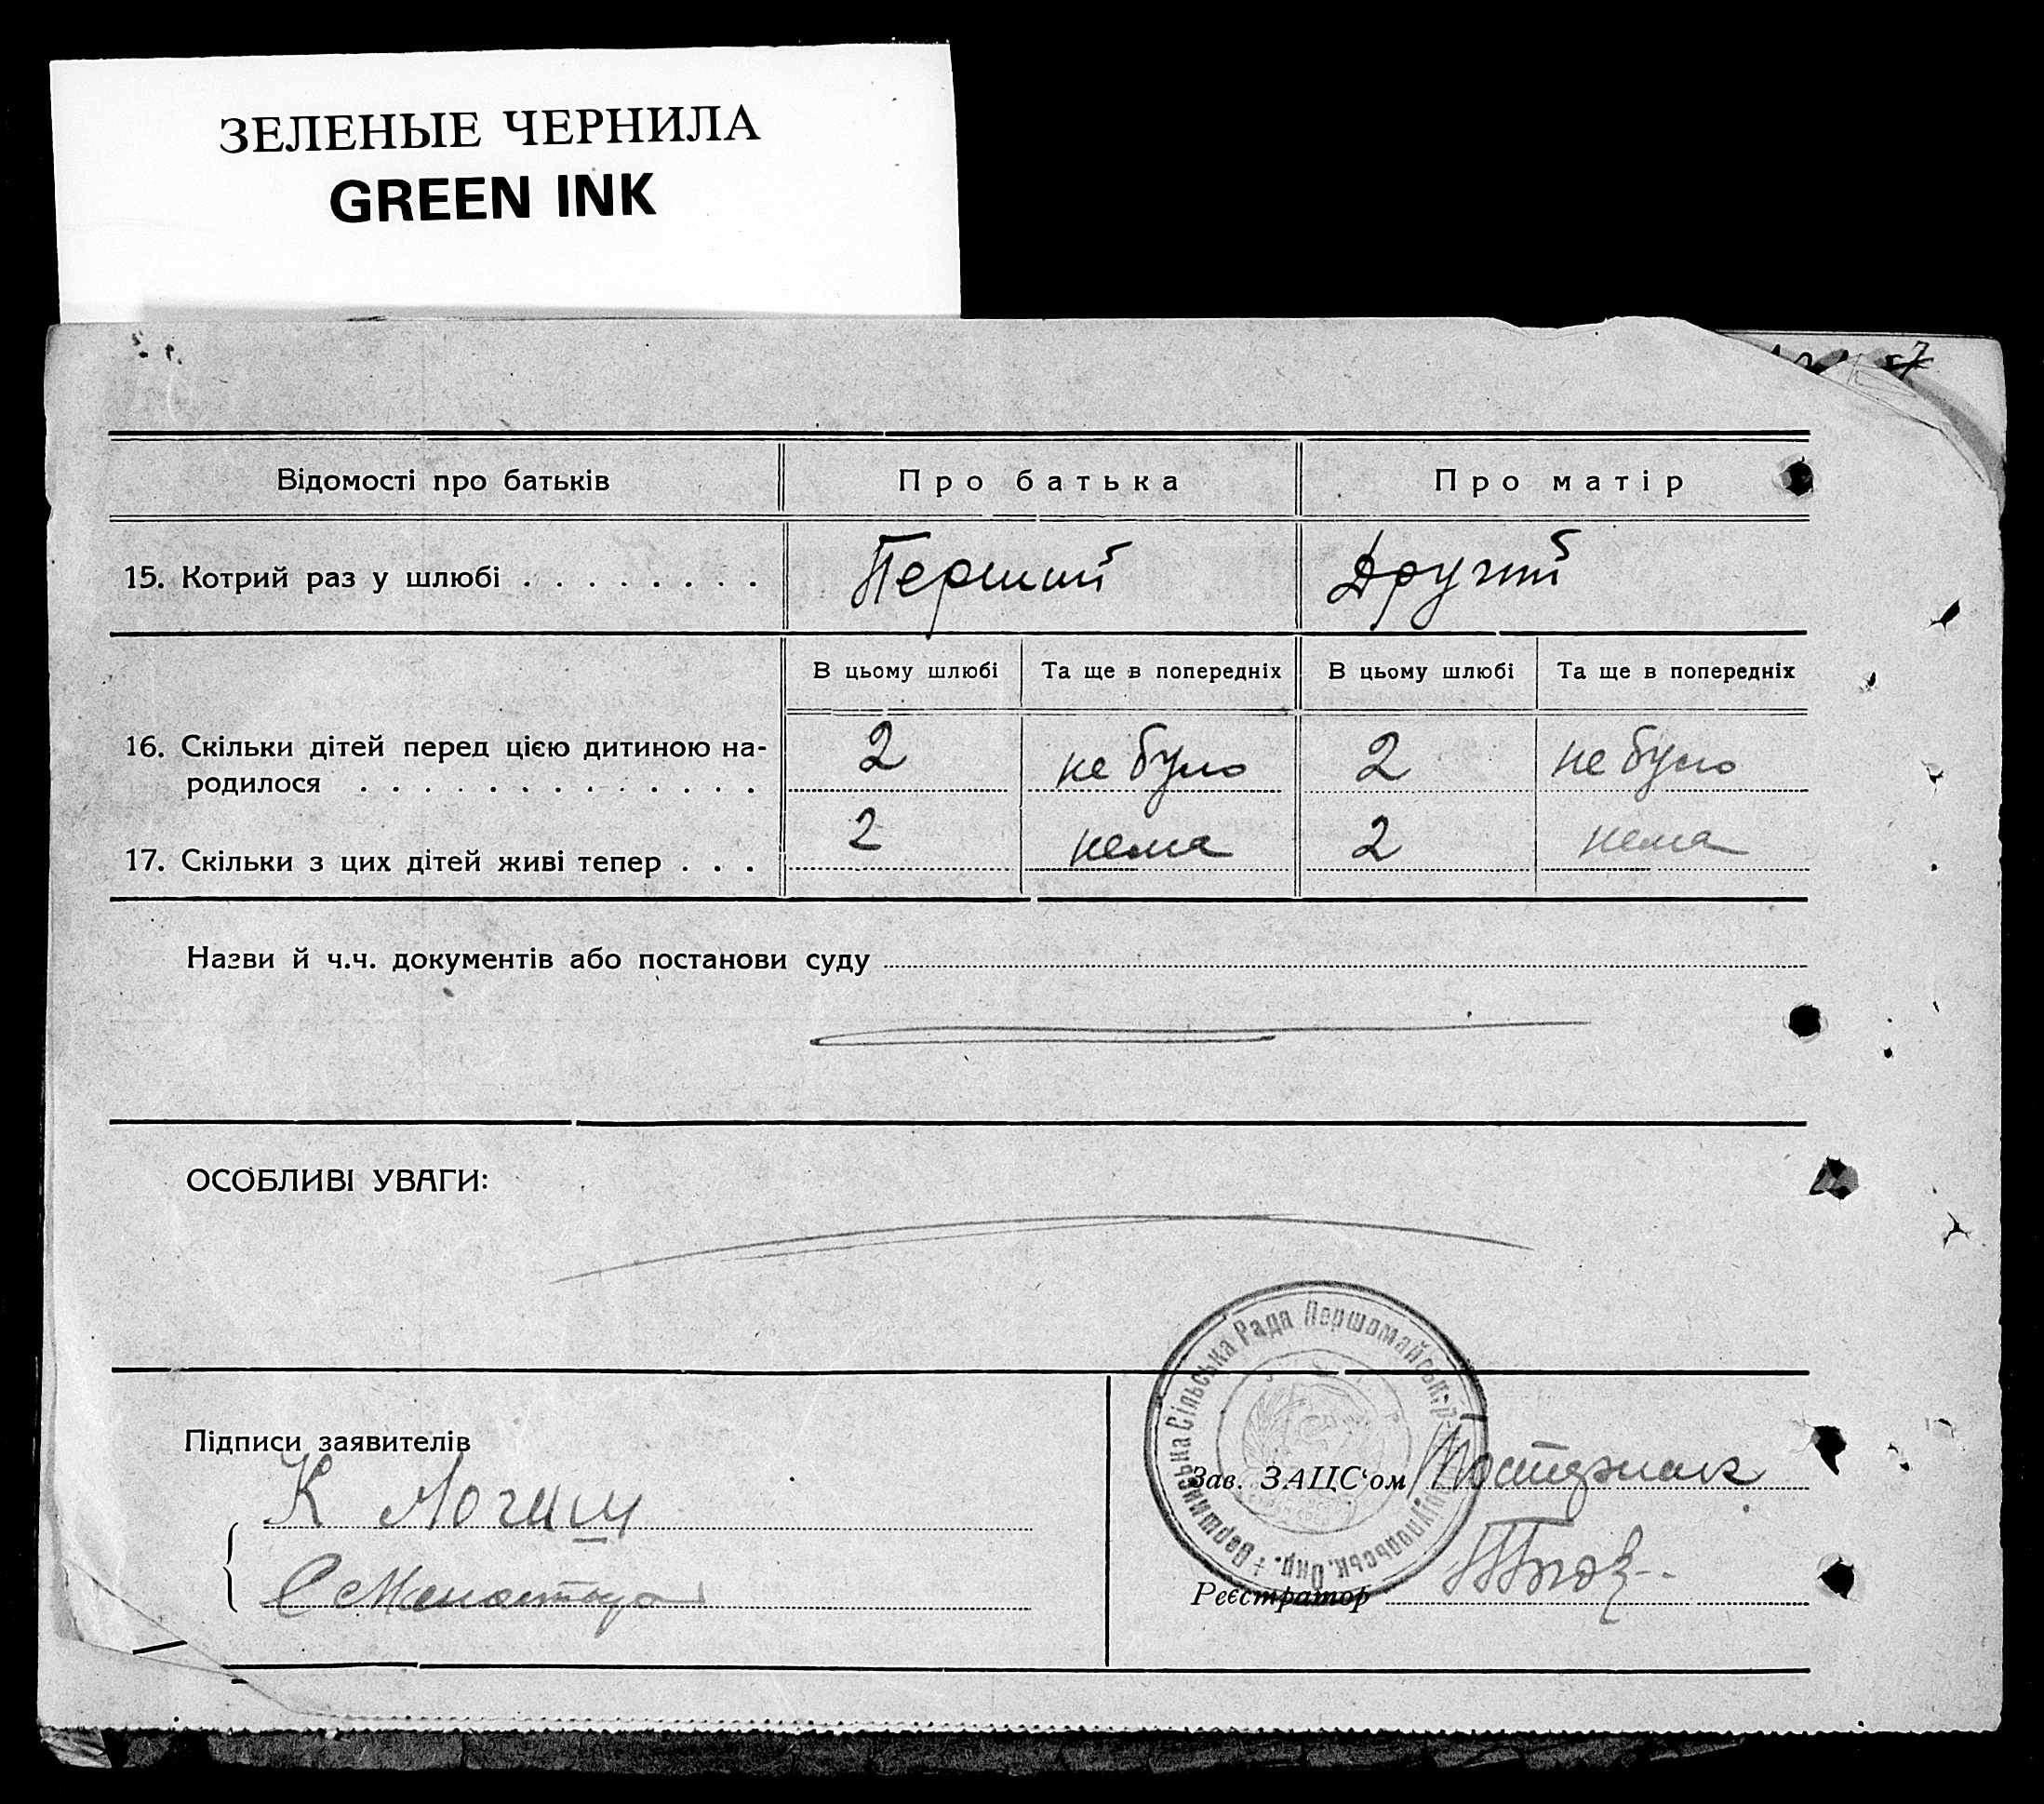 ЗЕЛЕНЫЕ ЧЕРНИЛА
GREEN INK
Відомості про батьків Про батька Про матір
15. Котрий раз у шлюбі . . . . . . . . Перший Другий
В цьому шлюбі Та ще в попередніх В цьому шлюбі Та ще в попередніх
16. Скільки дітей перед цією дитиною на-
родилося . . . . . . . . . . . . . 2 не було 2 не було
17. Скільки з цих дітей живі тепер . . . 2 нема 2 нема
Назви й ч.ч. документів або постанови суду
ОСОБЛИВІ УВАГИ:
Сільська Рада Першомайськ.
Підписи заявителів
К
Зав. ЗАЦС‘ом
Реєстратор